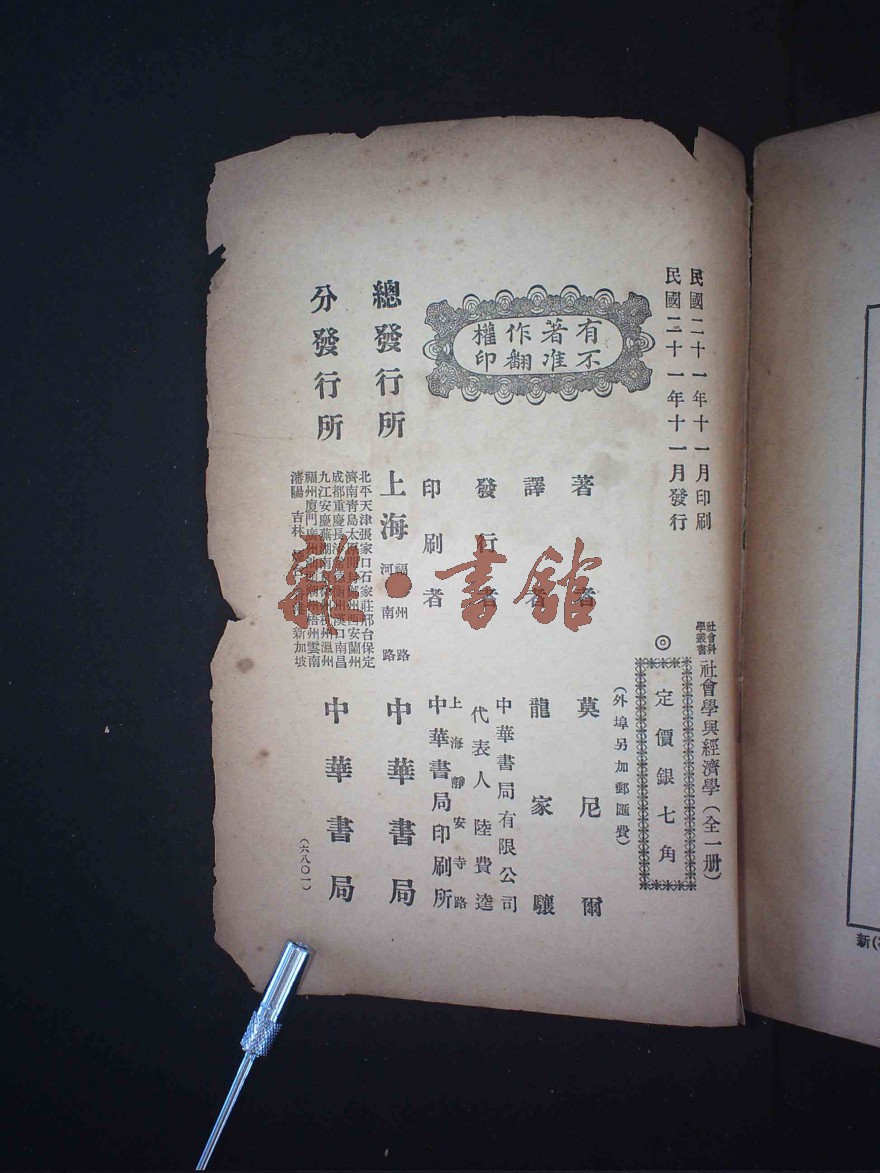 民國二十一年十一月印刷
民國二十一年十一月發行
社會科學叢書 社會學與經濟學(全一册)
◎定價銀七角
(外埠另加郵匯費)
有著作權
不准翻印
著者 莫尼爾
譯者 龍家驤
發行者 中華書局有限公司
代表人 陸費逵
印刷者 上海靜安寺路
中華書局印刷所
總發行所 上海 福州路 河南路 中華書局
分發行所
北平天津張家口石家莊邢台保定
濟南青島太原開封鄭州西安蘭州
成都重慶長沙 衡州漢口南昌
九江安慶蕪湖南 州溫州
福州廈門廣州 梧州雲南
瀋陽 吉林 新加坡
中華書局
(六八〇一)
雜·書館